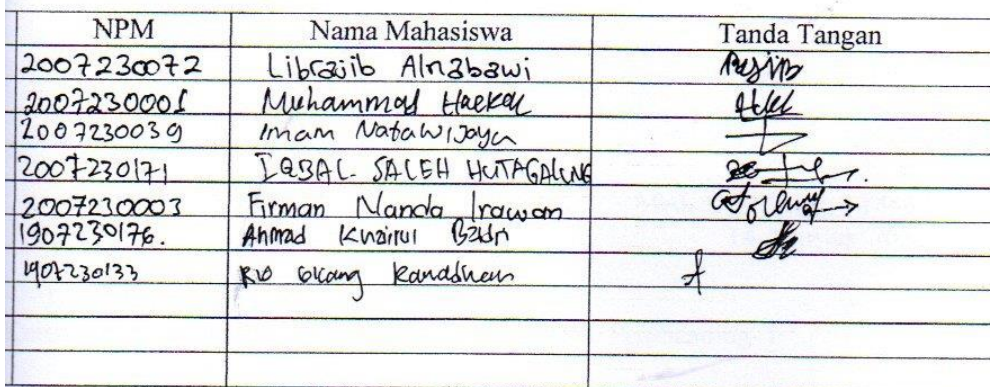 NPM Nama Mahasiswa Tanda Tangan
2007230072 Librajib Alnabawi
2007230001 Muhammad Haekal
2007230039 Imam Natawijaya
2007230171 IQBAL SALEH HUTAGALUNG
2007230003 Firman Nanda Irawan
1907230176. Ahmad Khairul Badri
1907230133 Rio Gilang Ramadhan